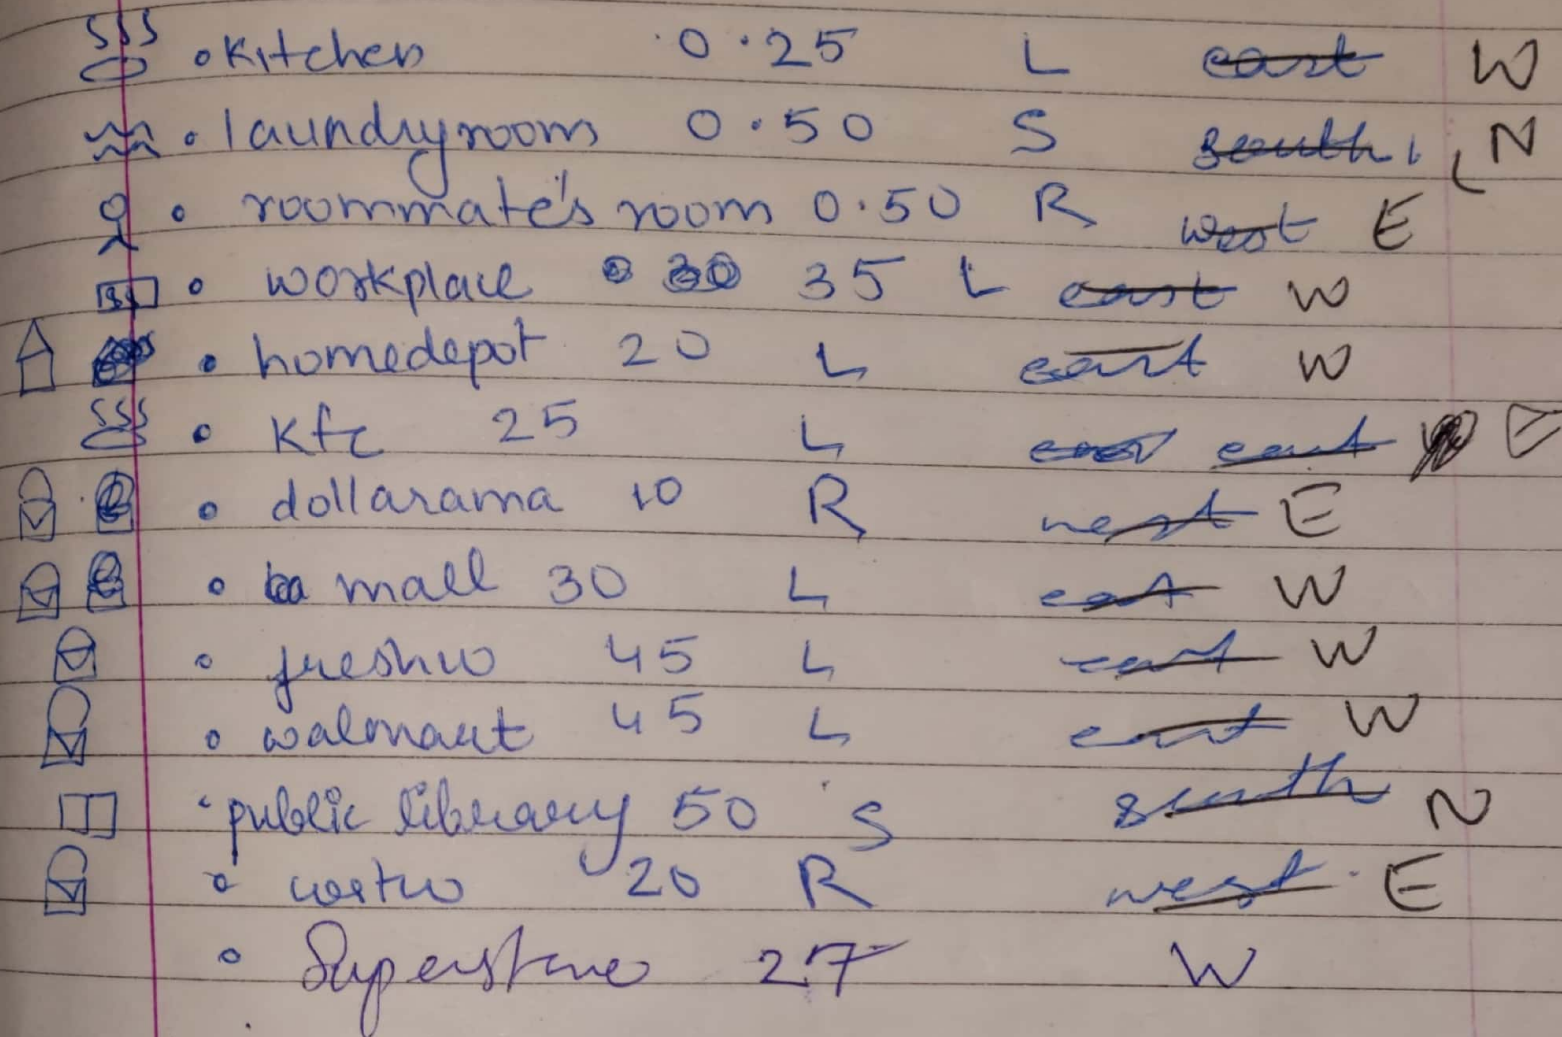 • Kitchen 0.25 L east W
• laundryroom 0.50 S south N
• roommate's room 0.50 R west E
• workplace 30 35 L east W
• homedepot 20 L east W
• Kfc 25 L east east W
• dollarama 10 R west E
• mall 30 L east W
• freshco 45 L east W
• walmart 45 L east W
• public library 50 S south N
• costco 20 R west E
• Superstore 27 W